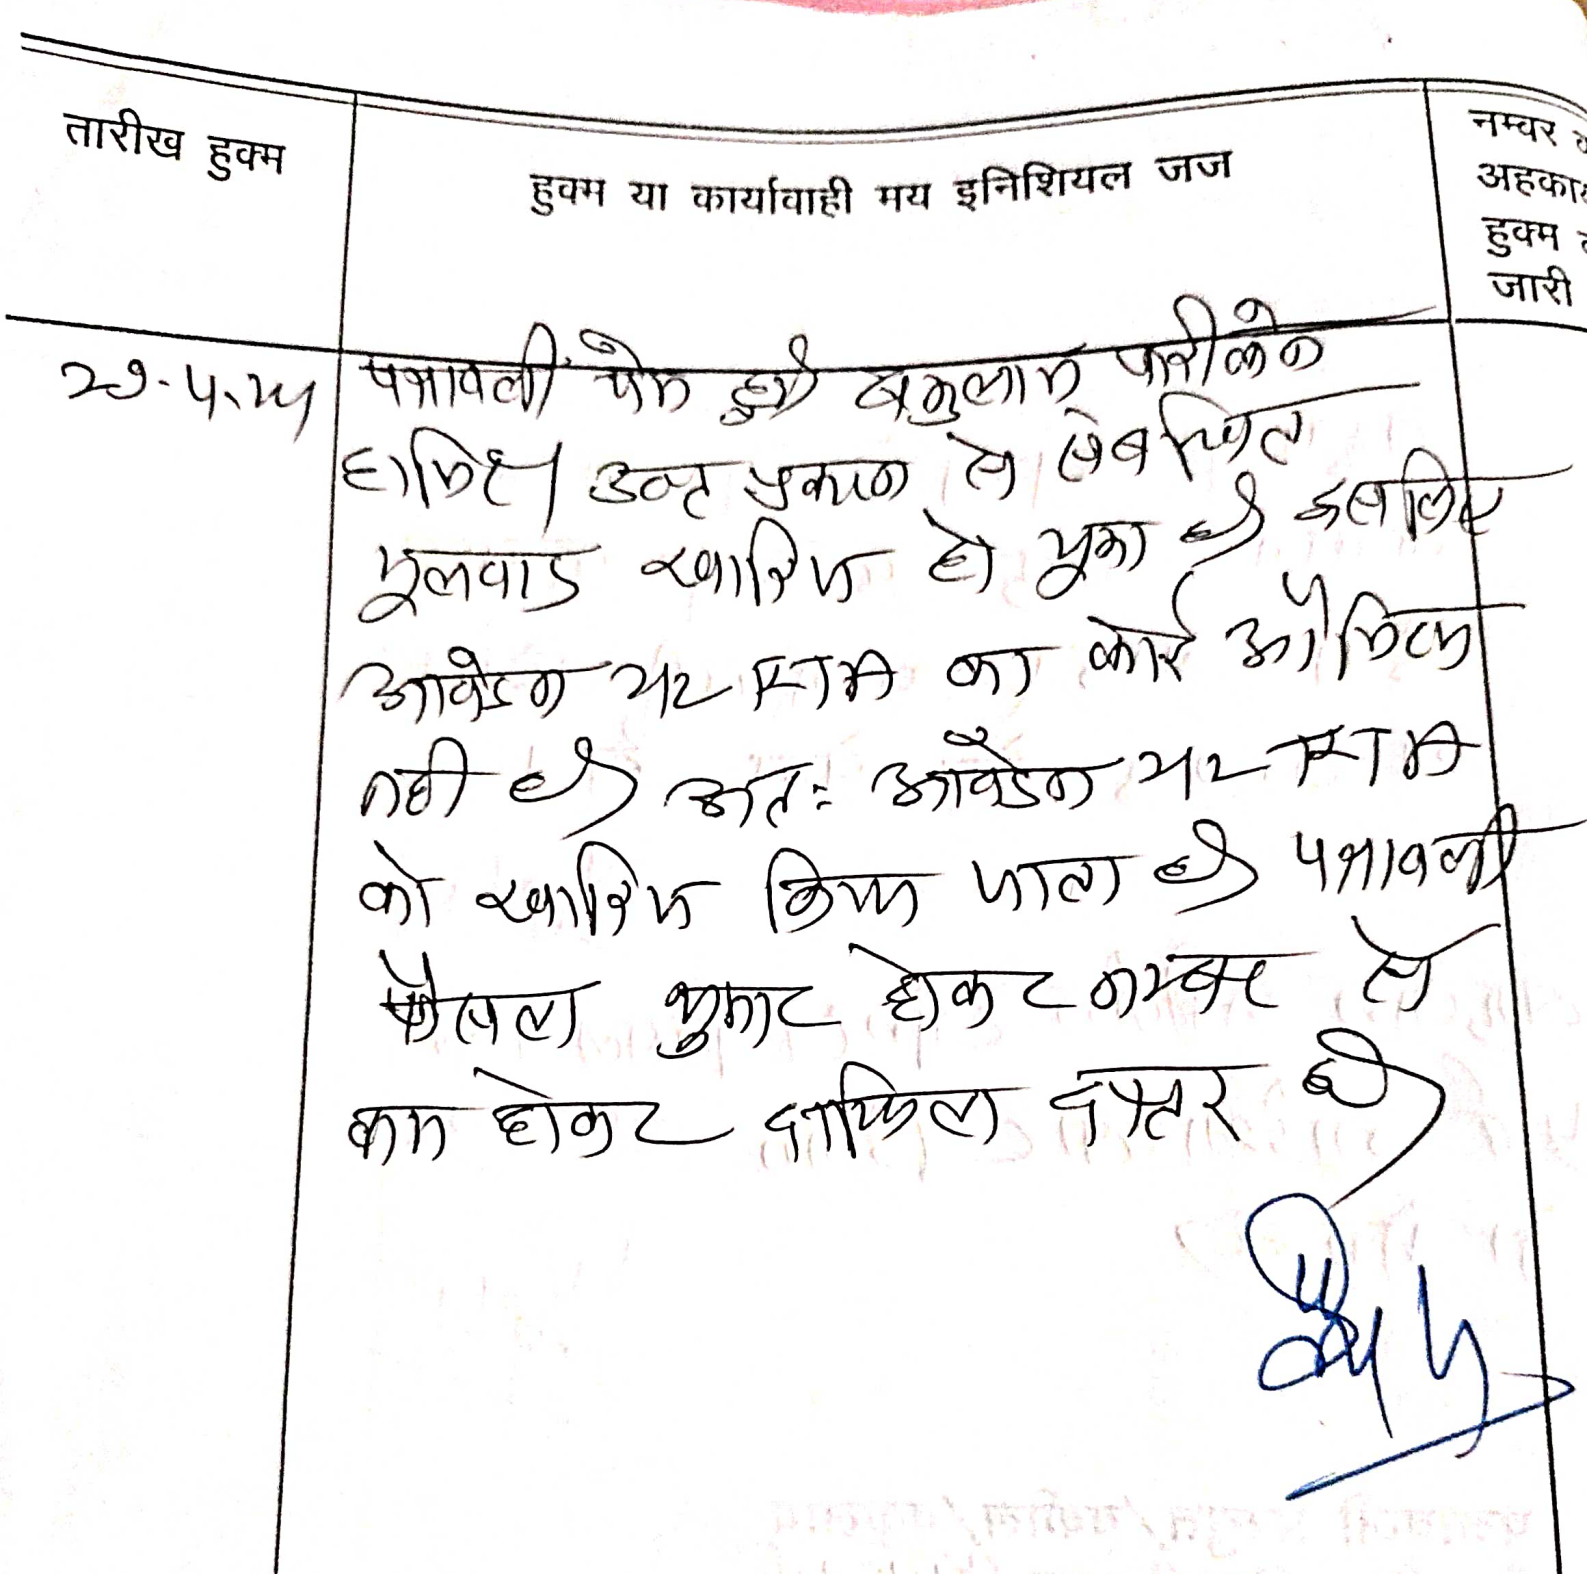 तारीख हुक्म
हुक्म या कार्यावाही मय इनिशियल जज
नम्बर
अहकाम
हुक्म
जारी
पत्रावली पेश हुई वकुलाय फरीकेन
हाजिर। उक्त प्रकरण से संबंधित
मूलवाद खारिज हो चूका है इसलिए
आवेदन 212 RTA का कोई औचित्य
नही है अतः आवेदन 212 RTA
को खारिज किया जाता है पत्रावली
फैसला शुमार होकर नम्बर से
कम होकर दाखिल दफ्तर हो